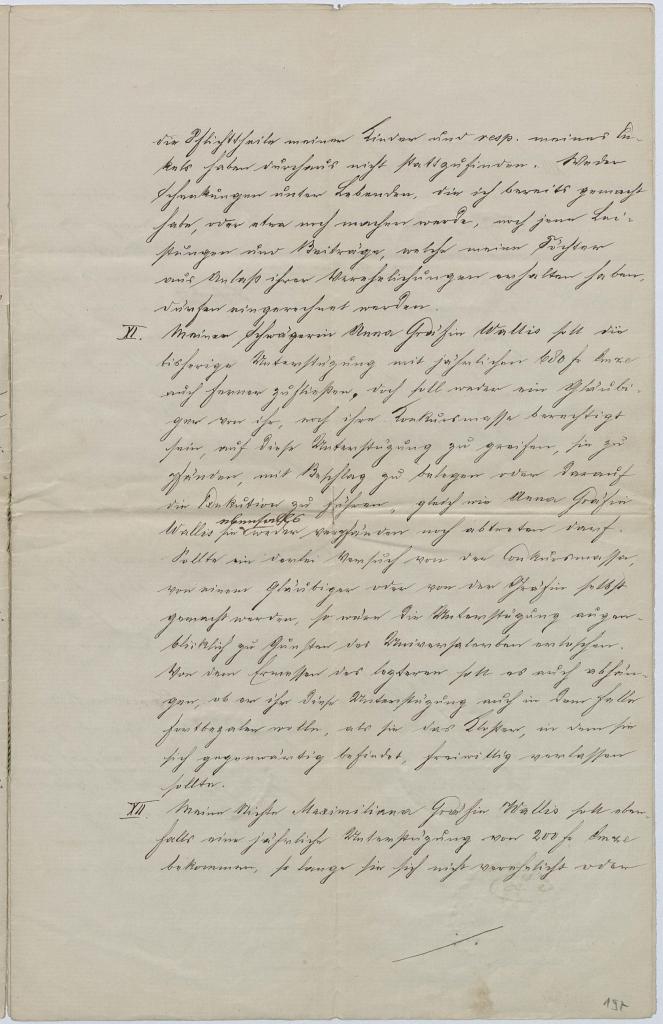 die Pflichttheile meiner Kinder und resp. meines En-
kels haben durchaus nicht stattzufinden. Weder
Schenkungen unter Lebenden, die ich bereits gemacht
habe, oder etwa noch machen werde, noch jene Lei-
stungen und Beiträge, welche meine Töchter
aus Anlaß ihrer Verehelichungen erhalten haben,
dürfen eingerechnet werden.
XI. Meiner Schwägerin Anna Gräfin Wallis soll die
bisherige Unterstützung mit jährlichen 680 fr
auch ferner zufließen, doch soll weder ein Gläubi-
ger von ihr, noch ihre Konkursmasse berechtigt
sein, auf diese Unterstützung zu greifen, sie zu
pfänden, mit Beschlag zu belegen oder darauf
die Exekution zu führen, gleich wie Anna Gräfin
Wallis sie ebenfalls weder verpfänden noch abtreten darf.
Sollte ein derlei Versuch von der Conkursmasse,
von einem Gläubiger oder von der Gräfin selbst
gemacht werden, so wäre die Unterstützung augen-
blicklich zu Gunsten des Universalerben erloschen.
Von dem Ermessen des letzteren soll es auch abhän-
gen, ob er ihr diese Unterstützung auch in dem Falle
fortbezalen wolle, als sie das Kloster, in dem sie
sich gegenwärtig befindet, freiwillig verlassen
sollte.
XII. Meine Nichte Maximiliana Gräfin Wallis soll eben-
falls eine jährliche Unterstützung von 200 fr
bekommen, so lange sie sich nicht verehelicht oder
197